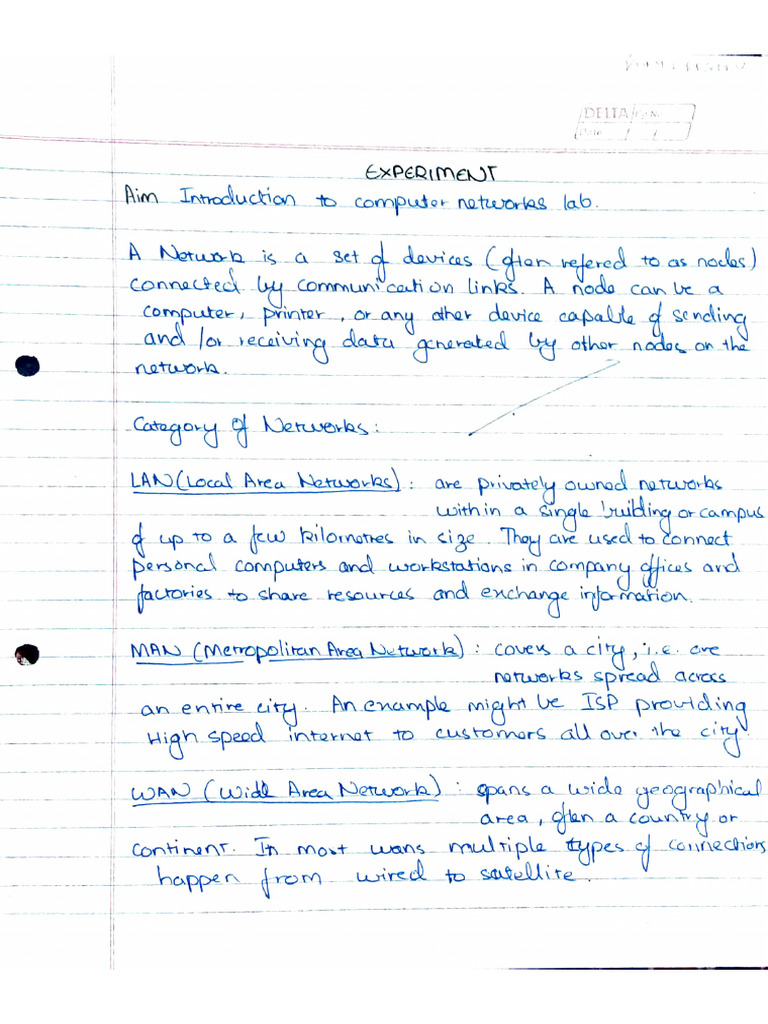 DELTA Pg No.
Date / /
EXPERIMENT
Aim Introduction to computer networks lab.
A Network is a set of devices (often refered to as nodes)
connected by communication links. A node can be a
computer, printer, or any other device capable of sending
and /or receiving data generated by other nodes on the
network.
Category of Networks:
LAN (Local Area Networks): are privately owned networks
within a single building or campus
of up to a few kilometres in size. They are used to connect
personal computers and workstations in company offices and
factories to share resources and exchange information.
MAN (Metropolitan Area Network): covers a city, i.e. are
networks spread across
an entire city. An example might be ISP providing
High speed internet to customers all over the city
WAN (Wide Area Network): spans a wide geographical
area, often a country or
continent. In most wans multiple types of connections
happen from wired to satellite.